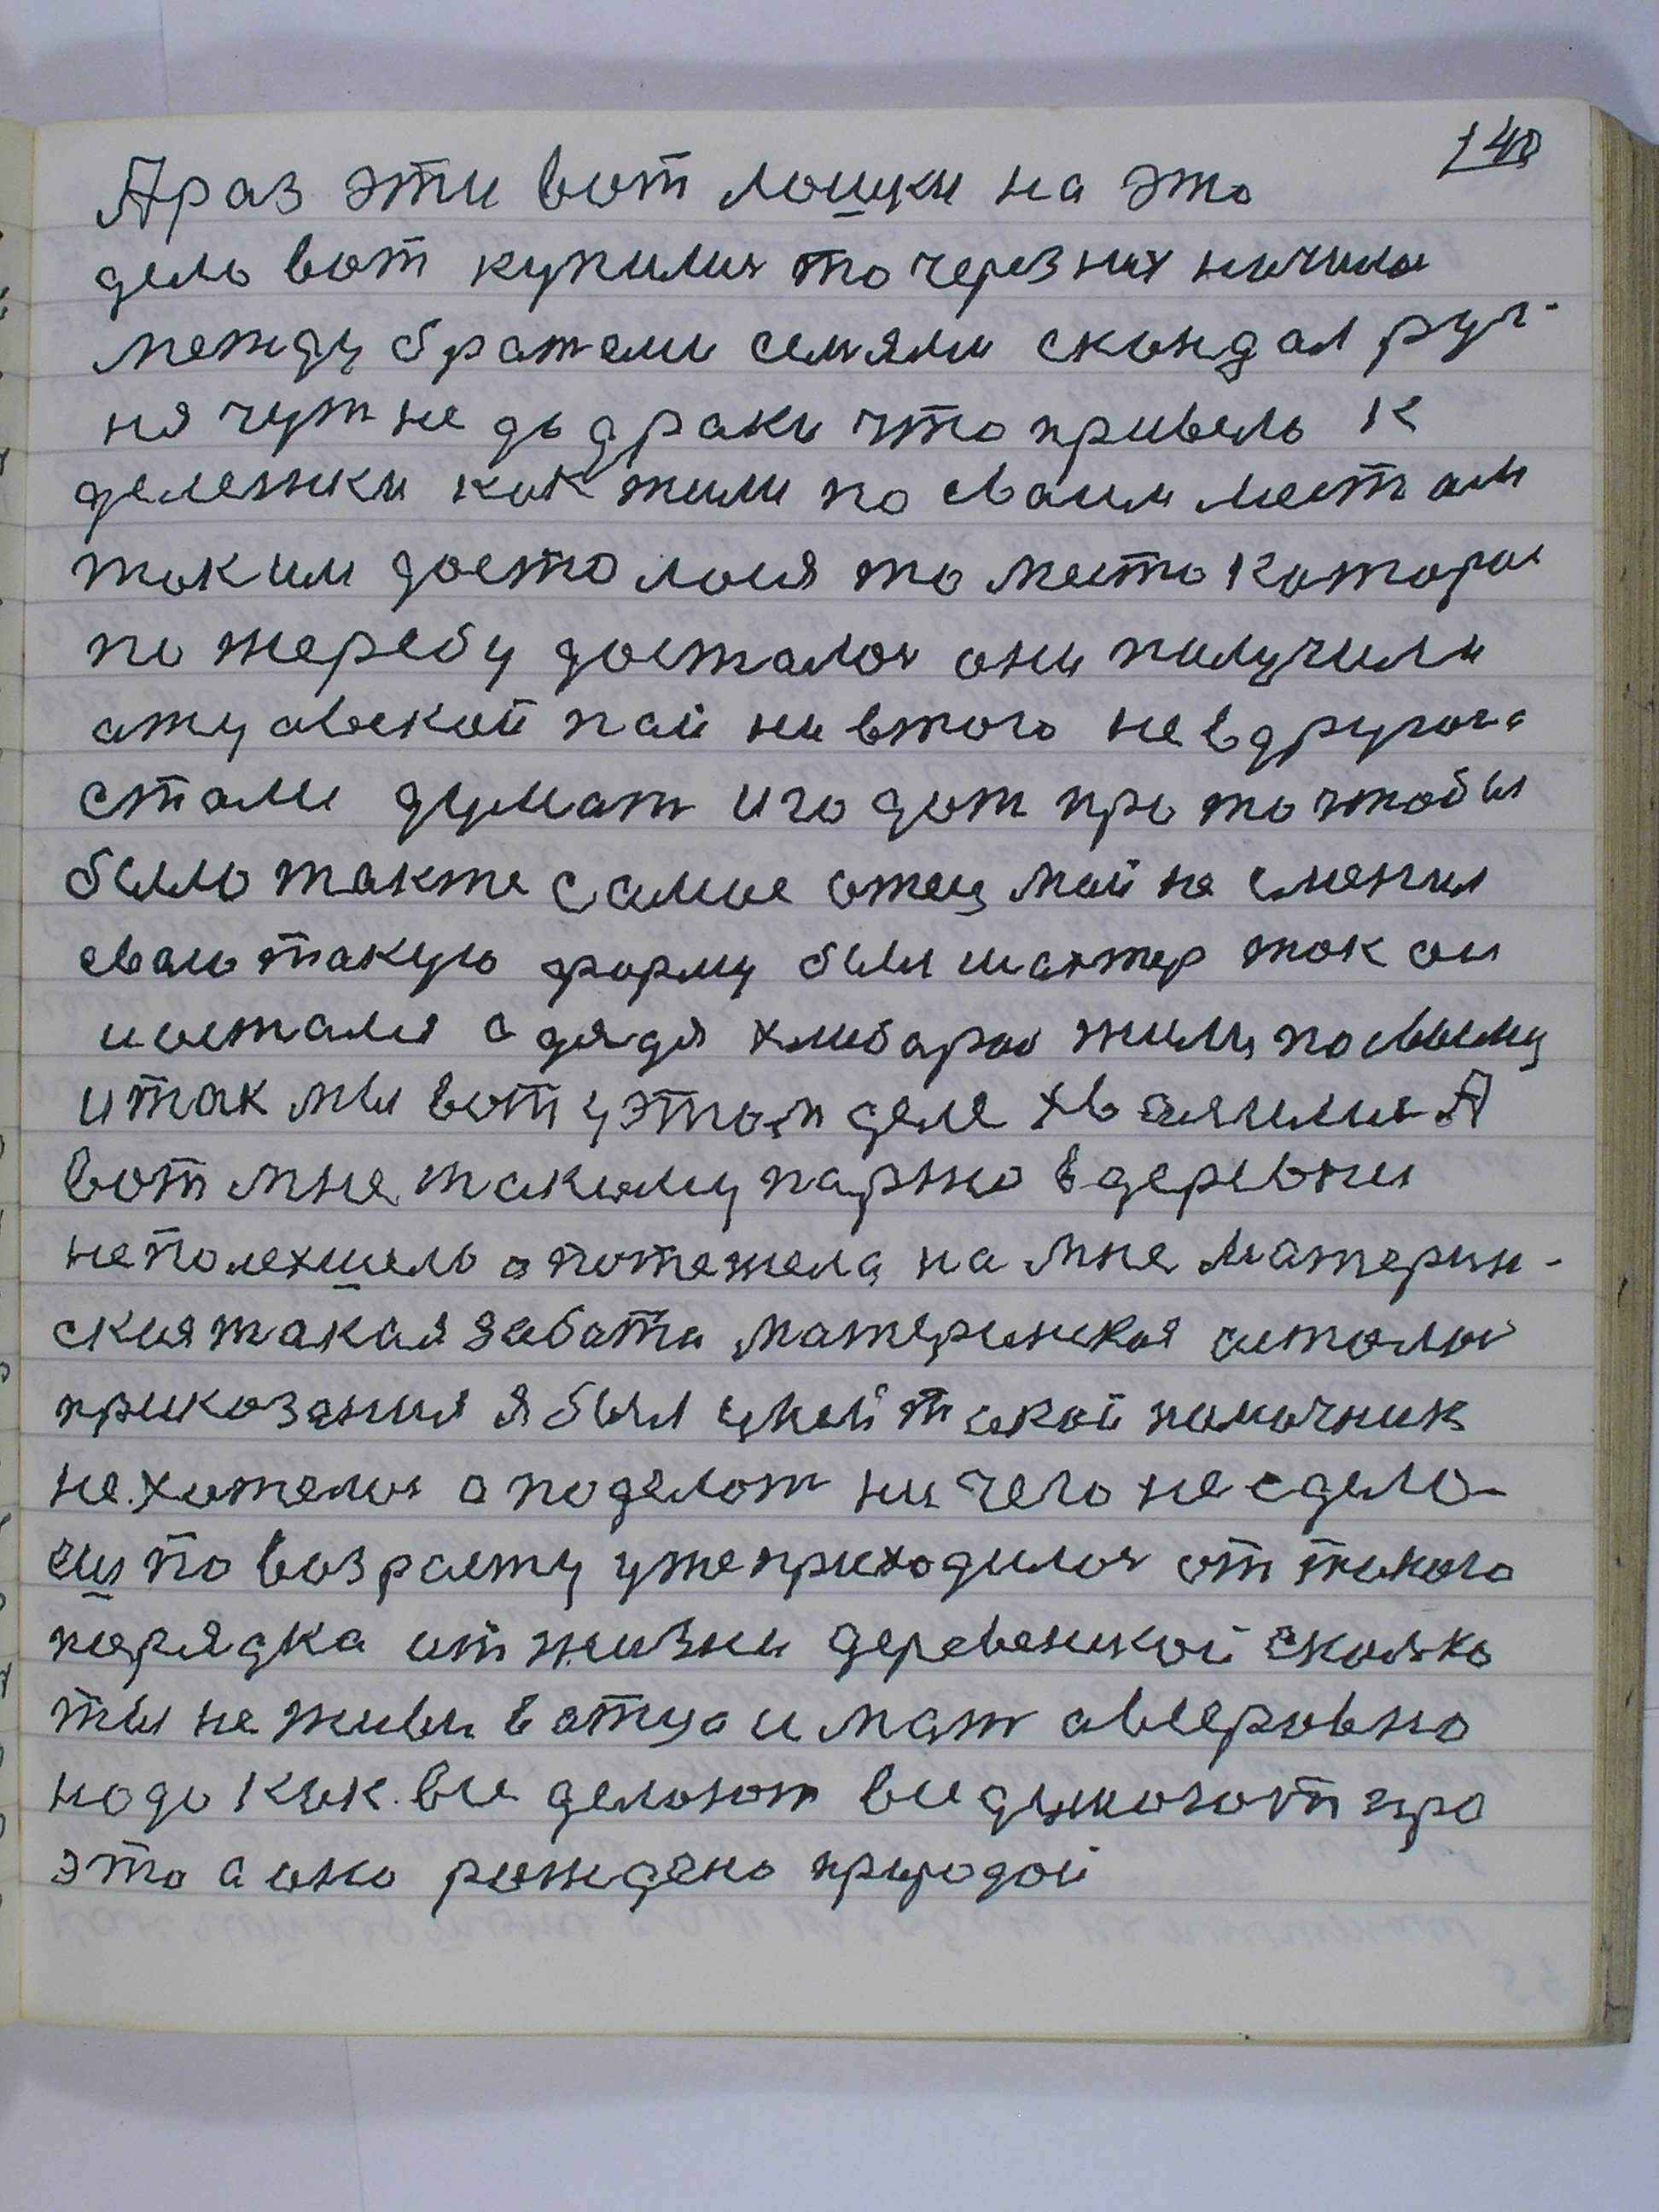 140
А раз эти вот лошки на это
дело вот купилися то через них начился
между братами семями скондал руг-
ня чуть не до драки что привело к
дележки как жили по сваим местам
так им досталося то место которое
по жеребу досталося они получили
атцовской пай ни в того не в другога
стали думать и годать про то чтобы
было так же самое отец мой не сменил
сваю такую форму был шахтер так он
и остался а дядя хлибароб жили по своему
и так мы вот у этом деле хвалилися А
вот мне такому парню в деревни
не полехшело а потежело на мне материн-
ския такая забота материнская остолося
приказания я был у ней такой помочник
не хотелося а поделат ни чего не сдело-
еш по возрасту уже приходилося от такого
порядка от жизни деревенской сколько
ты не живи в отца и мат а всеровно
надо как все делают все думают про
это а оно рождено природой